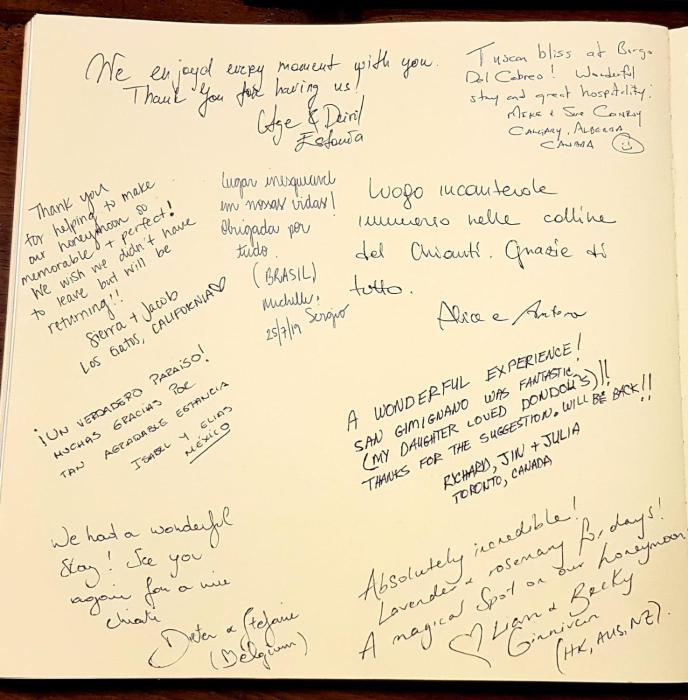 We enjoyd every moment with you.
Thank you for having us!
Age &
Estonia
Tuscan bliss at Borgo
Del Cabreo! Wonderful
stay and great hospitality.
MIKE & SUE CONROY
CALGARY, ALBERTA
CANADA
Thank you
for helping to make
our honeymoon so
memorable + perfect!
We wish we didn't have
to leave but will be
returning!!
Sierra + Jacob
LOS GATOS, CALIFORNIA
Lugar inesquecível
em nossas vidas!
Obrigada por
tudo.
(BRASIL)
Michelle!
Sergio
25/7/19
Luogo incantevole
immerso nelle colline
del Chianti. Grazie di
tutto.
Alice e
¡UN VERDADERO PARAISO!
MUCHAS GRACIAS POR
TAN AGRADABLE ESTANCIA
ISABEL Y ELIAS
MÉXICO
A WONDERFUL EXPERIENCE!
SAN GIMIGNANO WAS FANTASTIC
(MY DAUGHTER LOVED DONDOLI'S)!!
THANKS FOR THE SUGGESTION. WILL BE BACK!!
RICHARD, JIN + JULIA
TORONTO, CANADA
We had a wonderful
Stay! See you
again for a nice
chianti
Dieter & Stefanie
(Belgium)
Absolutely incredible!
Lavender & rosemary for days!
A magical spot on our honeymoon
Liam & Becky
Ginnivan
(HK, AUS, NZ).